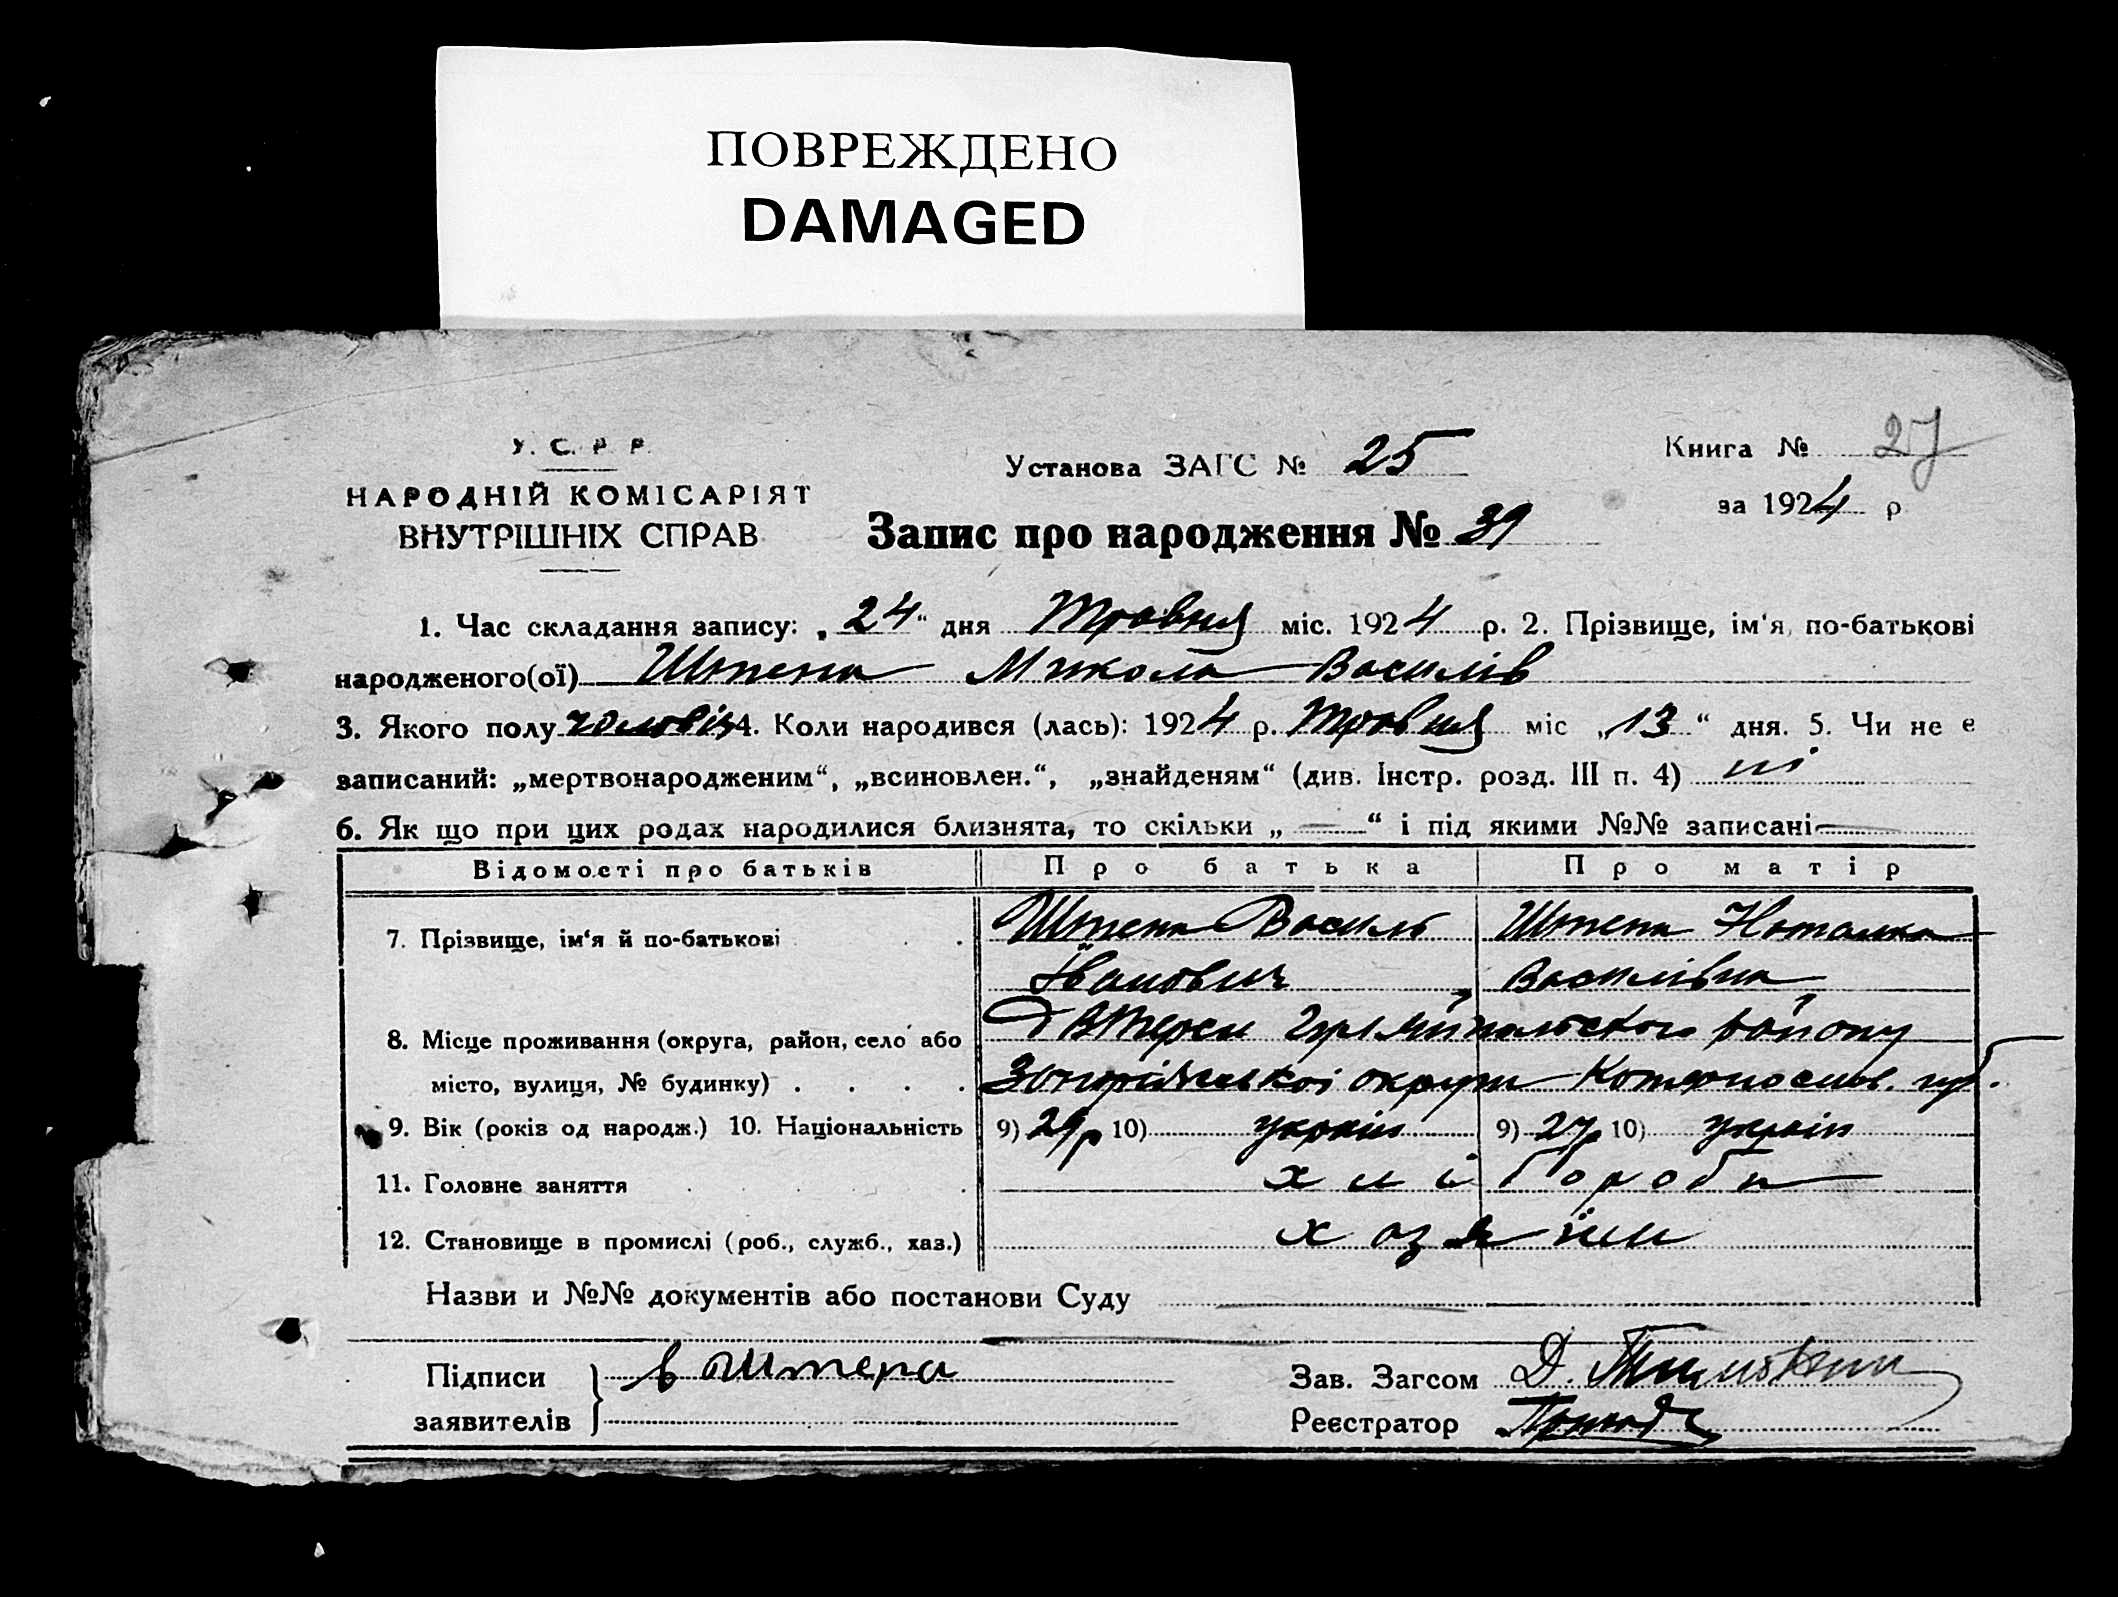 ПОВРЕЖДЕНО
DAMAGED
У. С. Р. Р.
НАРОДНІЙ КОМІСАРІЯТ
ВНУТРІШНІХ СПРАВ
Установа ЗАГС № 25
Книга № 27
за 1924 р
Запис про народження № 39
1. Час складання запису: „24“ дня Травня міс. 1924 р. 2. Прізвище, ім'я, по-батькові
народженого(ої) Штепа Микола Василів
3. Якого полу чоловіч 4. Коли народився (лась): 1924 р. Травня міс „13“ дня. 5. Чи не є
записаний: „мертвонародженим“, „всиновлен.“, „знайденям“ (див. Інстр. розд. III п. 4) ні
6. Як що при цих родах народилися близнята, то скільки „ — “ і під якими №№ записані —
Відомості про батьків Про батька Про матір
7. Прізвище, ім'я й по-батькові Штепа Василь Штепа Наталка
Іванович Василівна
8. Місце проживання (округа, район, село або району
місто, вулиця, № будинку) округи Катеринослав. губ.
9. Вік (років од народж.) 10. Національність 9) 29р 10) украін 9) 27р 10) украін
11. Головне заняття хліборобы
12. Становище в промислі (роб., служб., хаз.) хазяїни
Назви и №№ документів або постанови Суду
Підписи в штепа Зав. Загсом Д.
заявителів Реєстратор